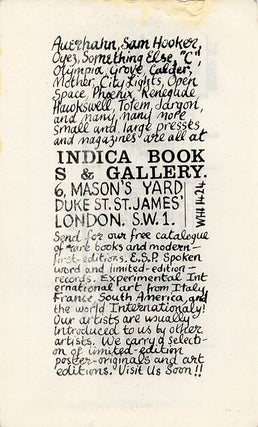 Auerhahn, Sam Hooker,
Oyez, Something Else, "C",
Olympia, Grove, Calder,
Mother, City Lights, Open
Space, Phoenix, Renegade
Hawkswell, Totem, Jargon,
and many, many more
small and large presses
and magazines are all at
INDICA BOOK
S & GALLERY.
6, MASON'S YARD
DUKE ST. ST. JAMES'
LONDON. S.W.1.
WHI 14.24
Send for our free catalogue
of rare books and modern-
first-editions. E.S.P. Spoken
word and limited-edition-
records. Experimental Int
ernational art from Italy,
France, South America, and
the world Internationaly!
Our artists are usually
Introduced to us by other
artists. We carry a select-
on of limited-edition
poster-originals and art
editions. Visit Us Soon!!